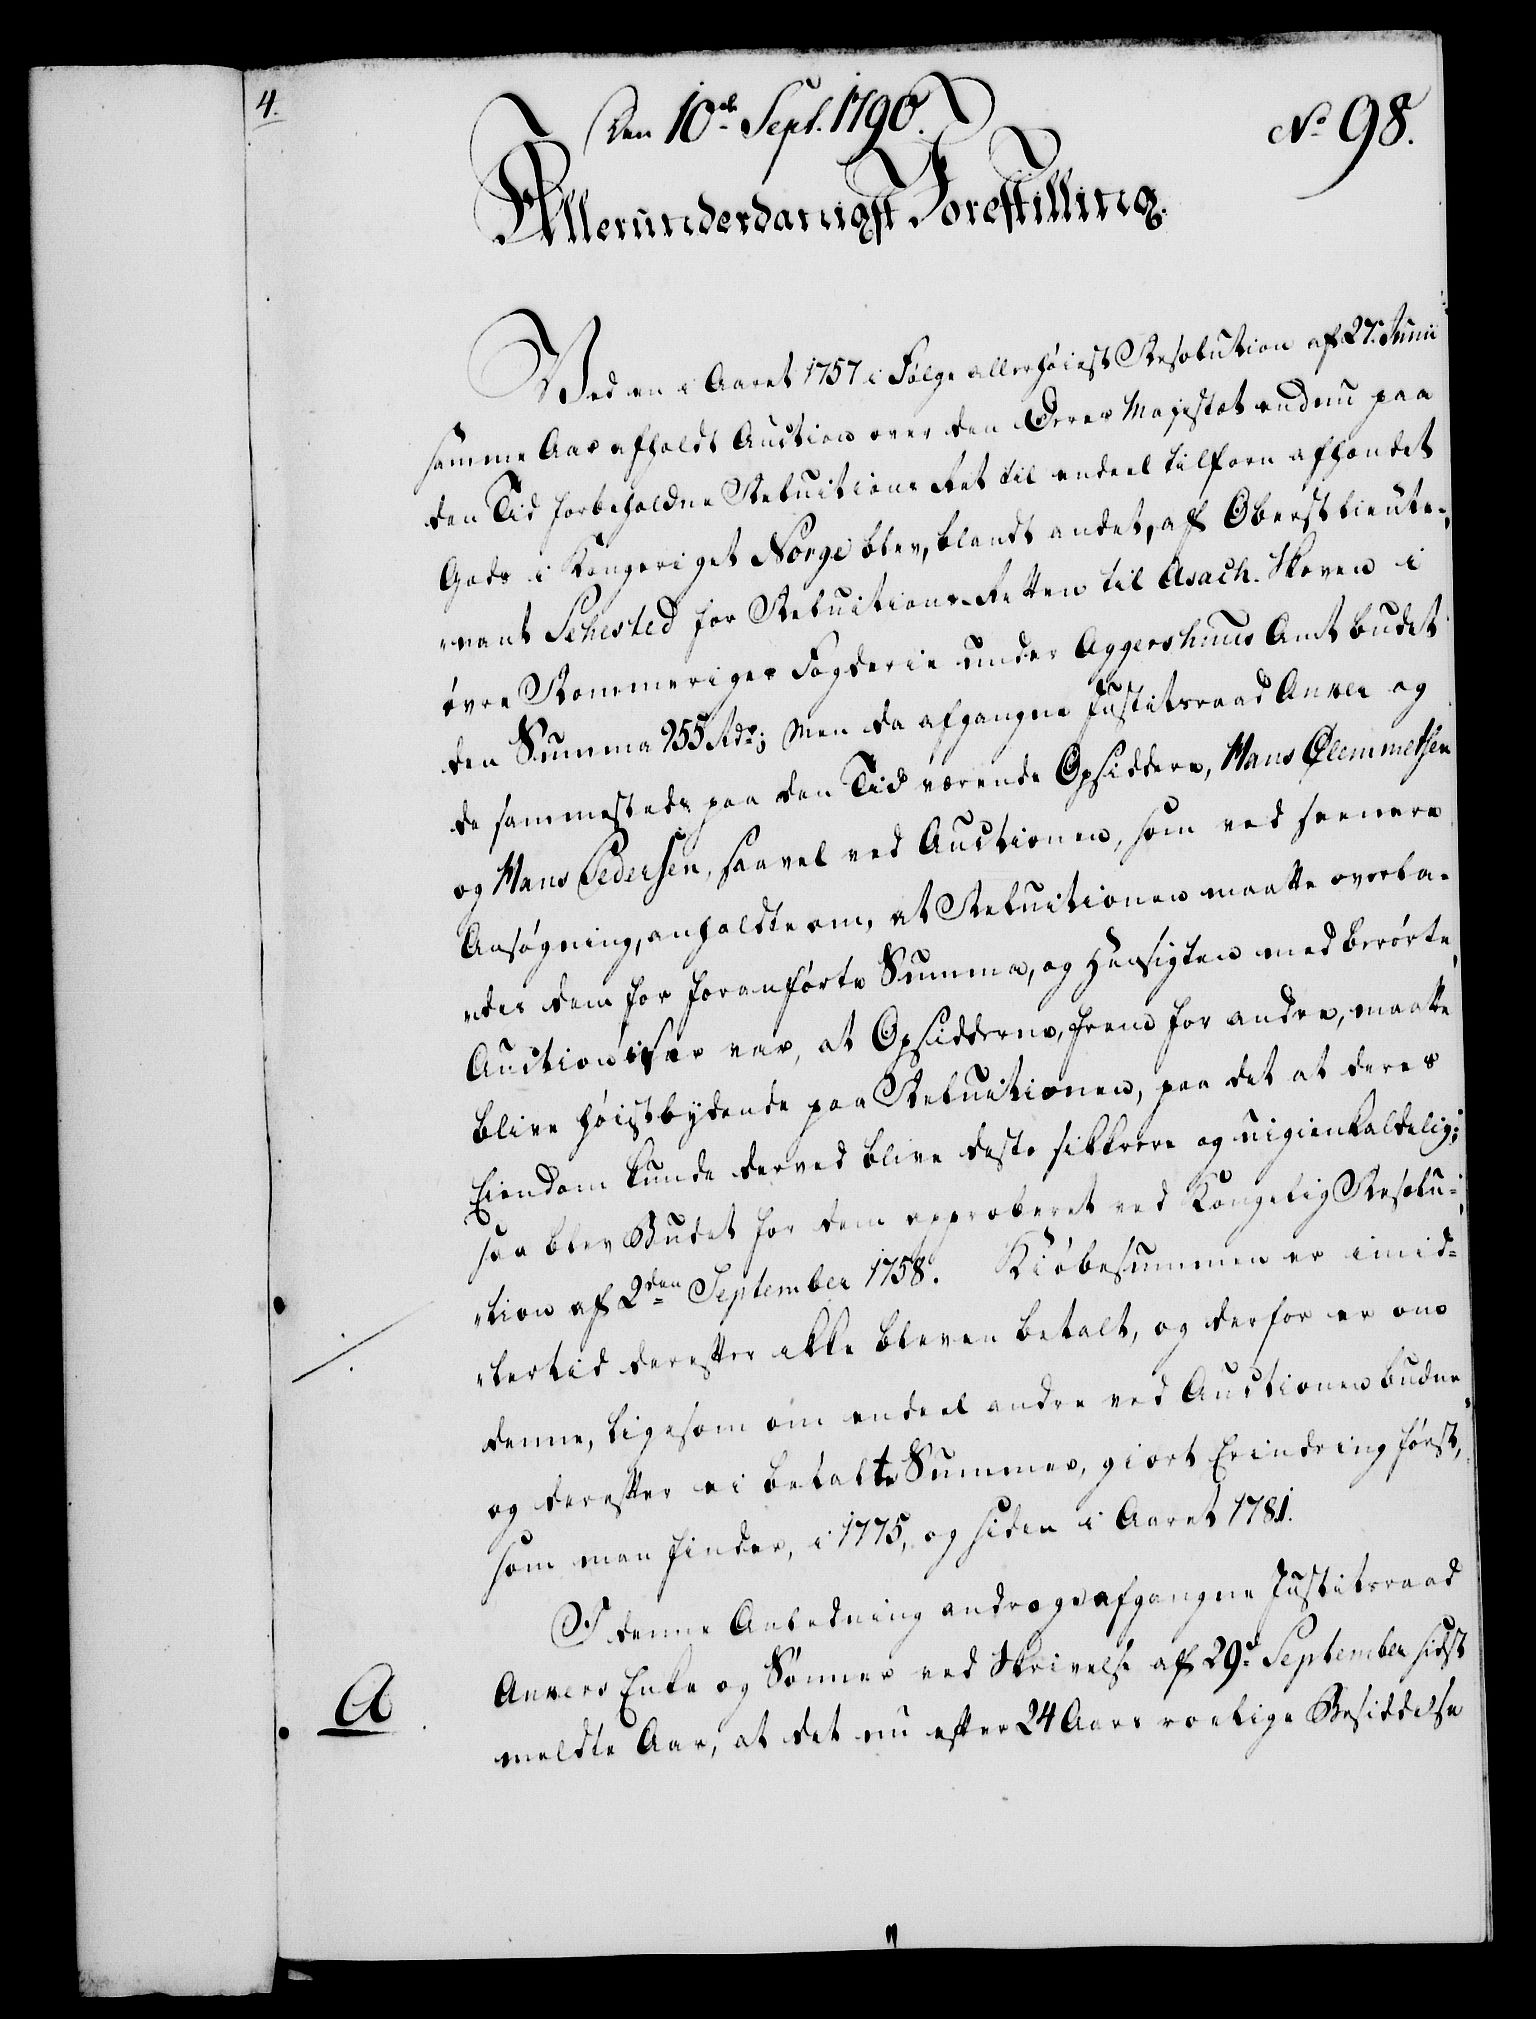 4.
Den 10de Sept. 1790.
No 98.
Allerunderdanigst Forestilling.
Ved en i Aaret 1757 i Følge allerhöiest Resolution af 27. Junii
samme Aar afholdt Auction over den Deres Majestæt endnu paa
den Tid forbeholdne Reluitions Ret til endeel tilforn afhændet
Gods i Kongeriget Norge blev, blandt andet, af Oberstlieute-
nant Sehested for Reluitions-Retten til Asach-Skoven i
övre Rommeriges Fogderie under Aggershuus Amt budet
den Summa 255 Rdr; Men da afgangne Justitsraad Anker og
de sammesteds paa den Tid værende Opsiddere, Hans Clemmetsen
og Hans Pedersen, saavel ved Auctionen, som ved seenere
Ansøgning, anholdte om, at Reluitionen maatte overla-
des dem for foranførte Summa, og Hensigten med berørte
Auction især var, at Opsidderne, frem for andre, maatte
blive høistbydende paa Reluitionen, paa det at deres
Eiendom kunde derved blive desto sikkrere og uigienkaldelig;
saa blev Budet for dem approberet ved Kongelig Resolu-
tion af 2den September 1758. Kiøbesummen er imid-
lertid derefter ikke bleven betalt, og derfor er om
denne, ligesom om endeel andre ved Auctionen budne
og derefter ei betalte Summer, giort Erindring først,
som man finder, i 1775, og siden i Aaret 1781.
I denne Anledning androge afgangne Justitsraad
A
Ankers Enke og Sønner ved Skrivelse af 29de September sidst
meldte Aar, at det nu efter 24 Aars roelige Besiddelse